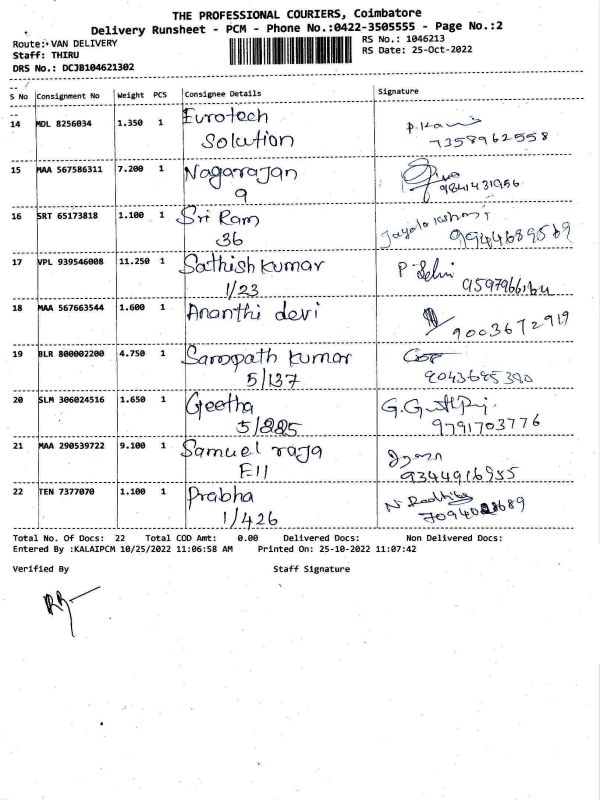 THE PROFESSIONAL COURIERS, Coimbatore
Delivery Runsheet - PCM - Phone No.:0422-3505555 - Page No.:2
Route: VAN DELIVERY
RS No.: 1046213
Staff: THIRU
RS Date: 25-Oct-2022
DRS No.: DCJB104621302
S No Consignment No Weight PCS Consignee Details Signature
14 MDL 8256034 1.350 1 Eurotech
Solution
7358962558
15 MAA 567586311 7.200 1 Nagarajan
9
9841431956
16 SRT 65173818 1.100 1 Sri Ram
36
9944689569
17 VPL 939546008 11.250 1 Sathish kumar P. Selvi
1/23
18 MAA 567663544 1.600 1 Ananthi devi
9003672919
19 BLR 800002200 4.750 1 Sampath kumar
5/137
20 SLM 306024516 1.650 1 Geetha
5/225
9791703776
21 MAA 290539722 9.100 1 Samuel raja
E11
9344916955
22 TEN 7377070 1.100 1 Prabha N. Radhika
1/426
Total No. Of Docs: 22 Total COD Amt: 0.00 Delivered Docs: Non Delivered Docs:
Entered By :KALAIPCM 10/25/2022 11:06:58 AM Printed On: 25-10-2022 11:07:42
Verified By Staff Signature